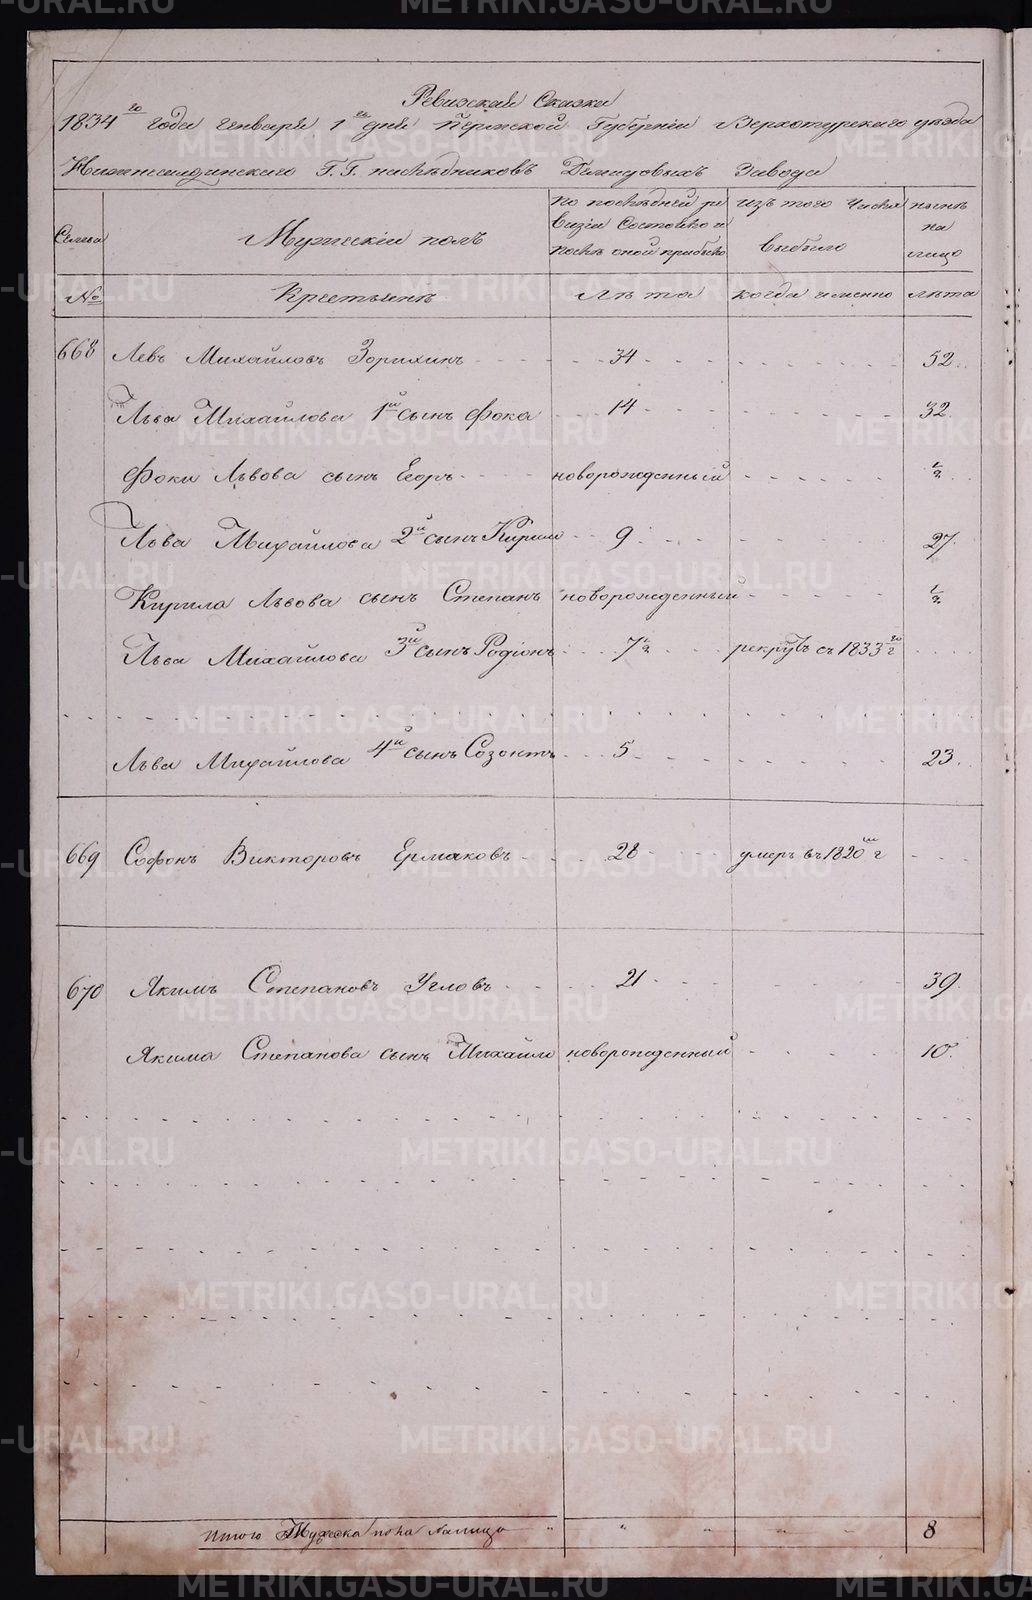 Ревизская Сказка
1834го года Генваря 1го дня Пермской Губернии Верхотурскаго уезда
Нижнесалдинскаго Г.Г. наследниковъ Демидовыхъ Завода
Семьи
Мужескiй полъ
По последней ре
визiи состояло и
после оной прибыло
изъ того числа
выбыло
ныне
на
лицо
№
Крестьяне
Лета
когда именно
лета
668 Левъ Михайловъ Зорихинъ 34 52
Льва Михайлова 1й сынъ Фока 14 32
Фоки Львова сынъ Егоръ новорожденный ½
Льва Михайлова 2й сынъ Кирила 9 27
Кирила Львова сынъ Степанъ новорожденный ½
Льва Михайлова 3й сынъ Родiонъ 7½ рекрутъ съ 1833го г
Льва Михайлова 4й сынъ Созонтъ 5 23
669 Софонъ Викторовъ Ермаковъ 28 умеръ въ 1820м г
670 Якимъ Степановъ Угловъ 21 39
Якима Степанова сынъ Михайло новорожденный 10
Итого Мужеска пола налицо " " " " 8
METRIKI.GASO-URAL.RU